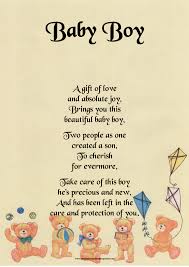 Baby Boy
A gift of love
and absolute joy,
Brings you this
beautiful baby boy,
Two people as one
created a son,
To cherish
for evermore,
Take care of this boy
he's precious and new,
And has been left in the
care and protection of you.